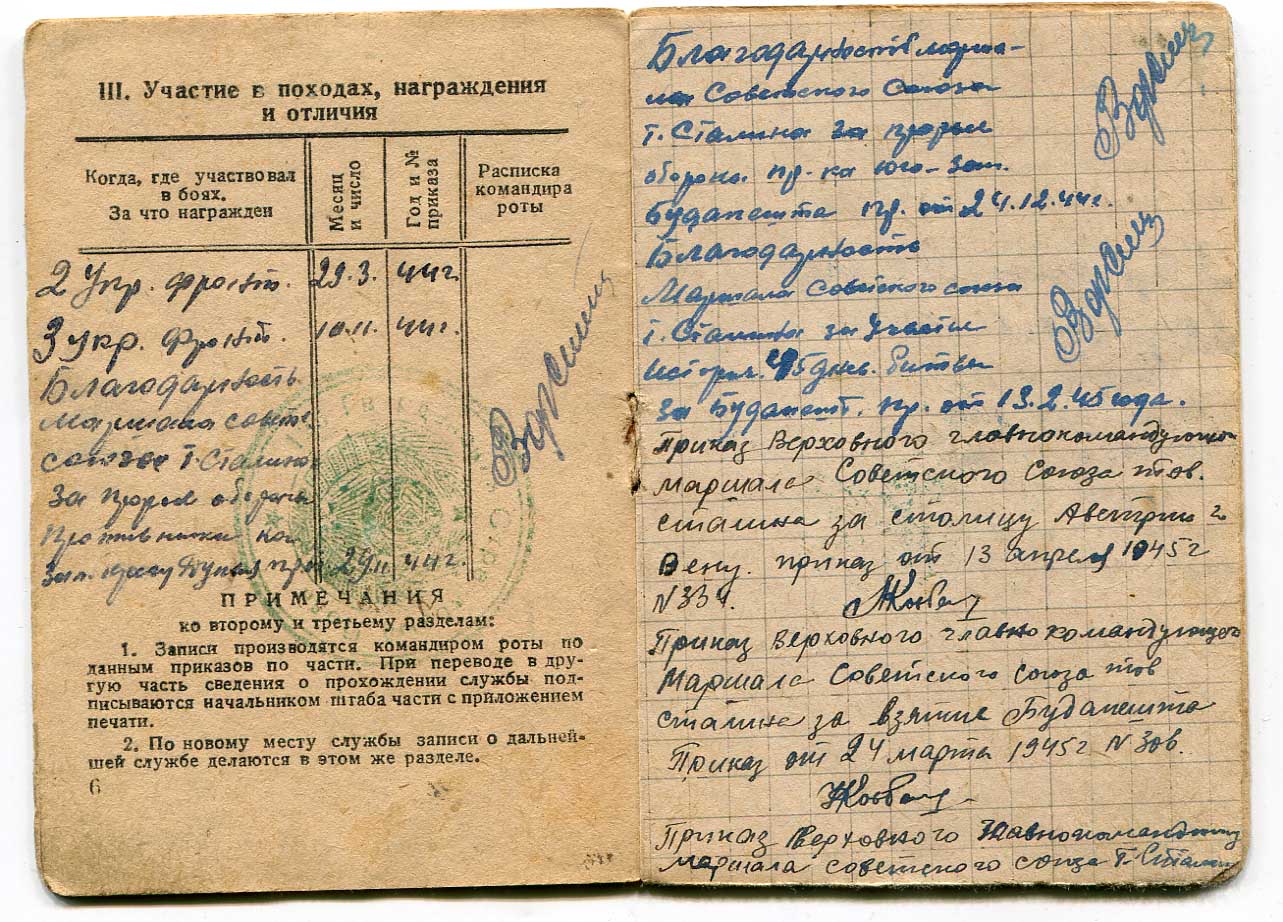 III. Участие в походах, награждения
и отличия
Когда, где участвовал
в боях.
За что награжден
Месяц
и число
Год и №
приказа
Расписка
командира
роты
2 Укр. фронт. 29.3. 44 г.
3 укр. фронт. 10.11. 44 г.
Благодарность
маршала
союза т. Сталина
За прорыв обороны
противника
29.11 44 г.
ПРИМЕЧАНИЯ
ко второму и третьему разделам:
1. Записи производятся командиром роты по
данным приказов по части. При переводе в дру-
гую часть сведения о прохождении службы под-
писываются начальником штаба части с приложением
печати.
2. По новому месту службы записи о дальней-
шей службе делаются в этом же разделе.
6
Благодарность
Советского Союза
т. Сталина за прорыв
обороны пр-ка юго-зап.
Будапешта пр. от 24.12.44 г.
Благодарность
Маршала Советского союза
т. Сталина за участие
историч. 45 днев. битвы
За Будапешт. пр. от 13.2.45 года.
Приказ Верховного главнокомандующ
маршала Советского Союза тов.
сталина за столицу Австрии г
Вену. приказ от 13 апреля 1945 г
Приказ Верховного главнокомандующего
Маршала Советского союза тов
сталина за взятие Будапешта
Приказ от 24 марта 1945 г N 306.
Приказ Верховного
маршала советского союза т. Сталин